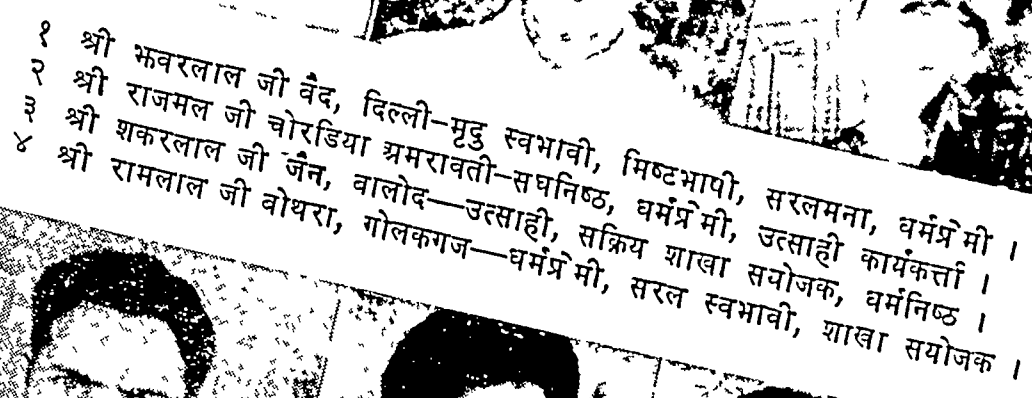 १ श्री झवरलाल जी वैद, दिल्ली–मृदु स्वभावी, मिष्टभाषी, सरलमना, धर्मप्रेमी ।
२ श्री राजमल जी चोरडिया अमरावती–सघनिष्ठ, धर्मप्रेमी, उत्साही कार्यकर्त्ता ।
३ श्री शकरलाल जी जैन, वालोद—उत्साही, सक्रिय शाखा सयोजक, धर्मनिष्ठ ।
४ श्री रामलाल जी वोथरा, गोलकगज—धर्मप्रेमी, सरल स्वभावी, शाखा सयोजक ।